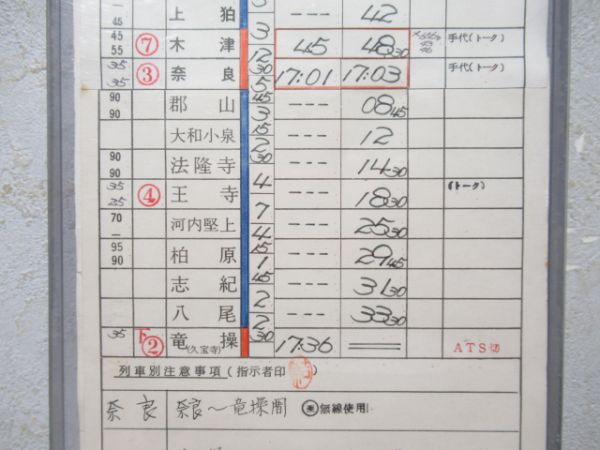 45 上狛 3 --- 42
45 55 ⑦ 木津 12 45 48 30 手代(トーク)
35 35 ③ 奈良 30 5 17:01 17:03 手代(トーク)
90 90 郡山 45 3 --- 08 45
大和小泉 15 2 --- 12
90 90 法隆寺 30 --- 14 30
35 25 ④ 王寺 4 --- 18 30 (トーク)
70 — 河内堅上 7 --- 25 30
95 90 柏原 4 15 1 --- 29 45
志紀 45 2 --- 31 30
八尾 2 --- 33 30
35 下② 竜操 (久宝寺) 30 17:36 ═ ATS切
列車別注意事項(指示者印)
奈良 奈良〜竜操間 無線使用